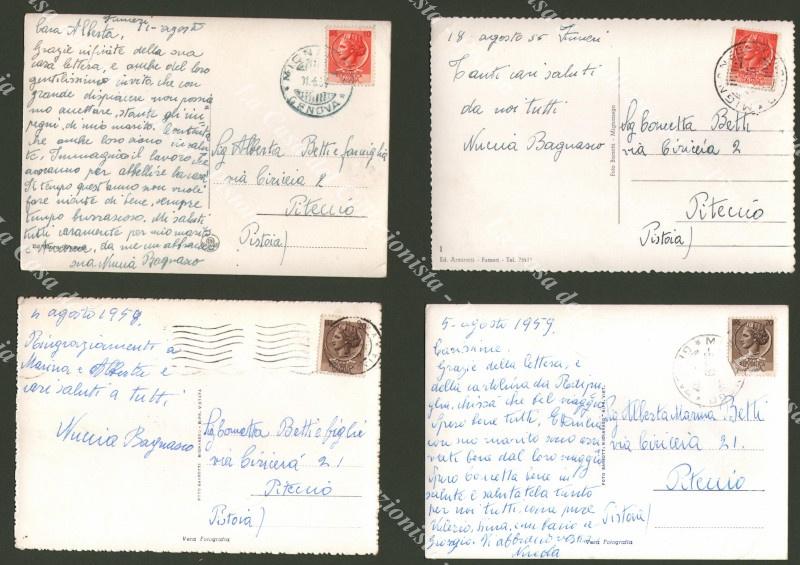 Fumeri 31-agosto
Cara Alberta,
Grazie infinite della sua
cara lettera, e anche del loro
gentilissimo invito, che con
grande dispiacere non possia
mo accettare, stante gli im
pegni di mio marito. Contenta
che anche loro siano in salu
te. Immagino il lavoro che
avranno per abbellire la casa.
Il tempo quest'anno non vuole
fare niente di bene, sempre
tempo burrascoso. Mi saluti
tutti caramente per mio marito
da me un abbraccio
sua Nuccia Bagnasco
GENOVA
Sig Alberta Betti e famiglia
via Ciriceia 2
Piteccio
Pistoia)
18 - agosto 56 Fumeri
Tanti cari saluti
da noi tutti
Nuccia Bagnasco
Foto Barotti - Mignanego
Sig Concetta Betti
via Ciriceia 2
Piteccio
Pistoia)
1
Ed. - Fumeri - Tel.
4 agosto 1959
Ringraziamento a
Marina e Alberta e
cari saluti a tutti
Nuccia Bagnasco
Sig Concetta Betti e figlie
via Ciricera 21
Piteccio
Pistoia)
Vera Fotografia
5-agosto 1959
Carissime.
Grazie della lettera, e
della cartolina da Redipu
glia, chissà che bel viaggio
Spero bene tutti,
con mio marito sono
dal loro viaggio
Spero Concetta bene in
salute e salutatela tanto
per noi tutti, come pure
Valerio,
Giorgio. Vi abbraccio vostra
Sig Alberta Marina Betti
via Ciricera 21.
Piteccio
Pistoia)
Vera Fotografia